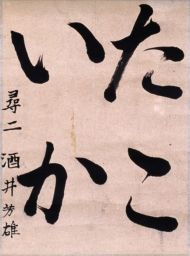 たこ
いか
尋二 酒井芳雄